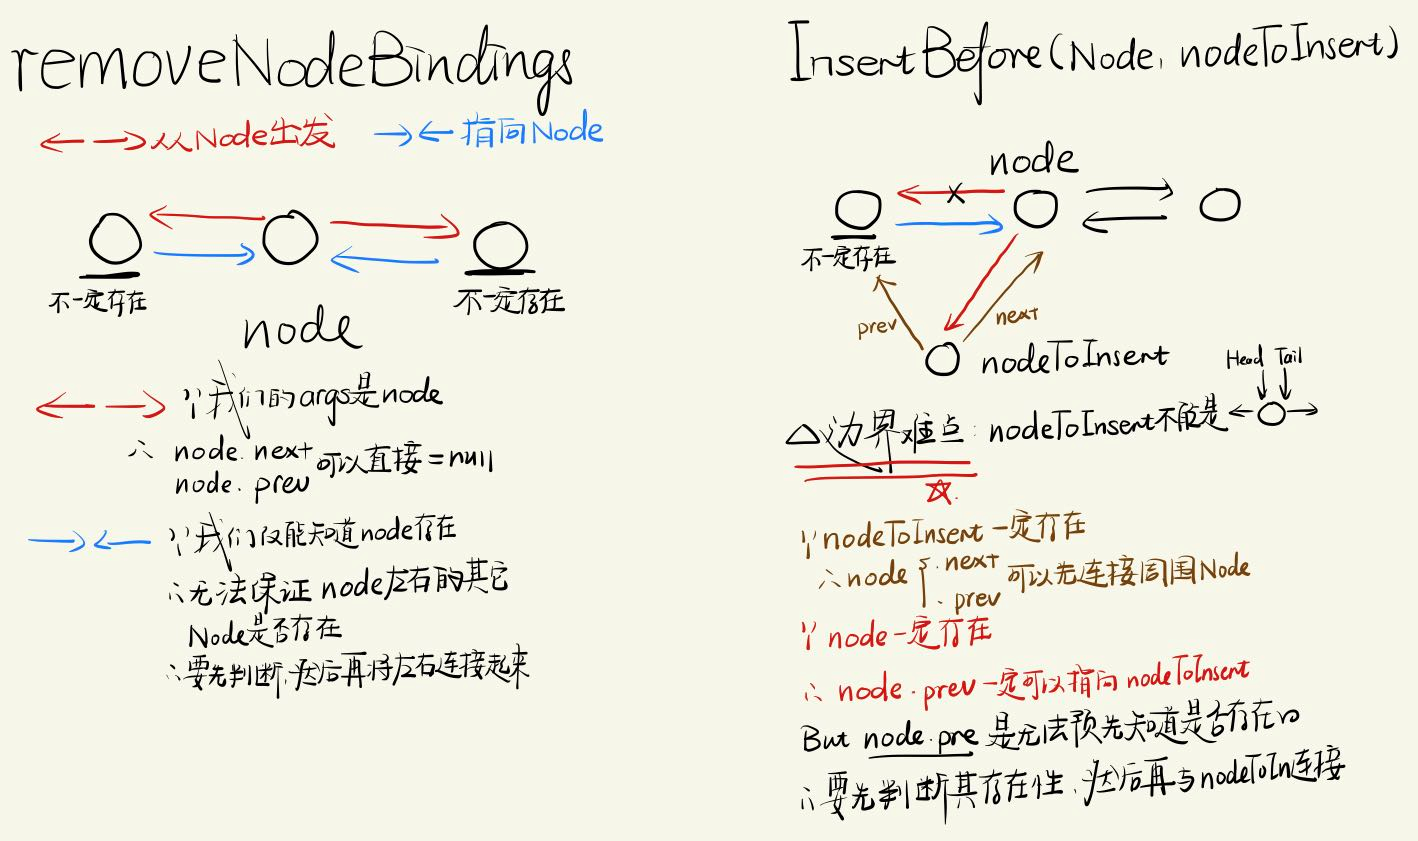 removeNodeBindings
从Node出发 指向Node
不一定存在
不一定存在
node
∵我们的args是node
∴ node.next可以直接=null
node.prev
∵我们仅能知道node存在
∴无法保证node左右的其它
Node是否存在
∴要先判断,然后再将左右连接起来
InsertBefore(Node, nodeToInsert)
node
不一定存在
prev
next
nodeToInsert
Head Tail
△边界难点:nodeToInsert不能是
∵nodeToInsert一定存在
∴node .next 可以先连接周围Node
.prev
∵node一定存在
∴node.prev一定可以指向nodeToInsert
But node.pre是无法预先知道是否存在的
∴要先判断其存在性,然后再与nodeToIn连接